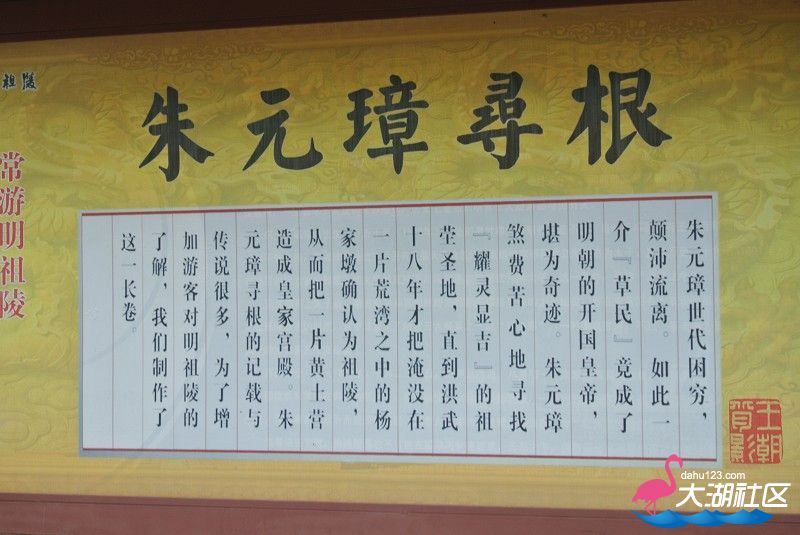 朱元璋尋根
祖陵
常游明祖陵
朱元璋世代困穷，
颠沛流离。如此一
介『草民』竟成了
明朝的开国皇帝，
堪为奇迹。朱元璋
煞费苦心地寻找
『耀灵显吉』的祖
茔圣地，直到洪武
十八年才把淹没在
一片荒湾之中的杨
家墩确认为祖陵，
从而把一片黄土营
造成皇家宫殿。朱
元璋寻根的记载与
传说很多，为了增
加游客对明祖陵的
了解，我们制作了
这一长卷。
dahu123.com
大湖社区